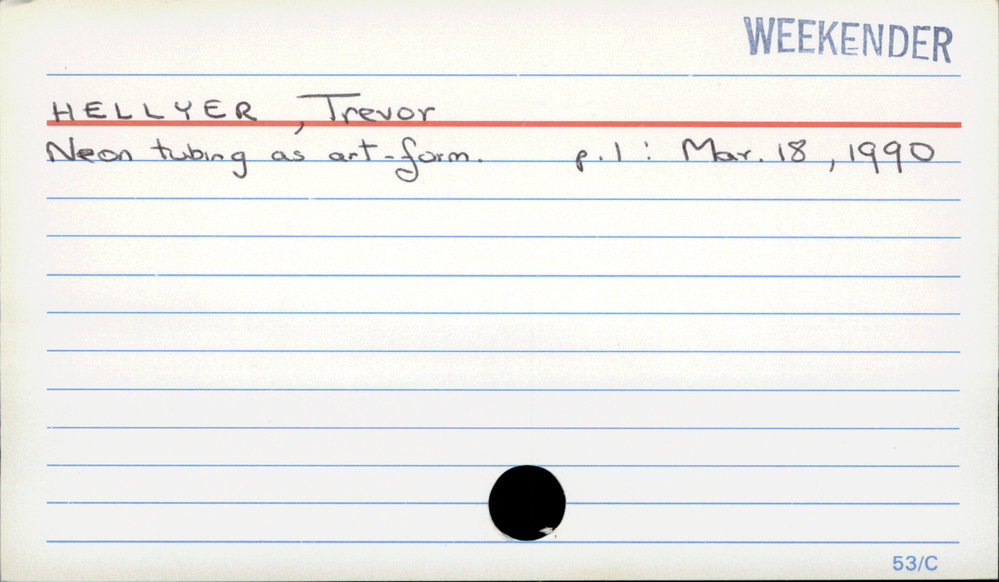 WEEKENDER
HELLYER, Trevor
Neon tubing as art-form. p.1: Mar. 18, 1990
53/C